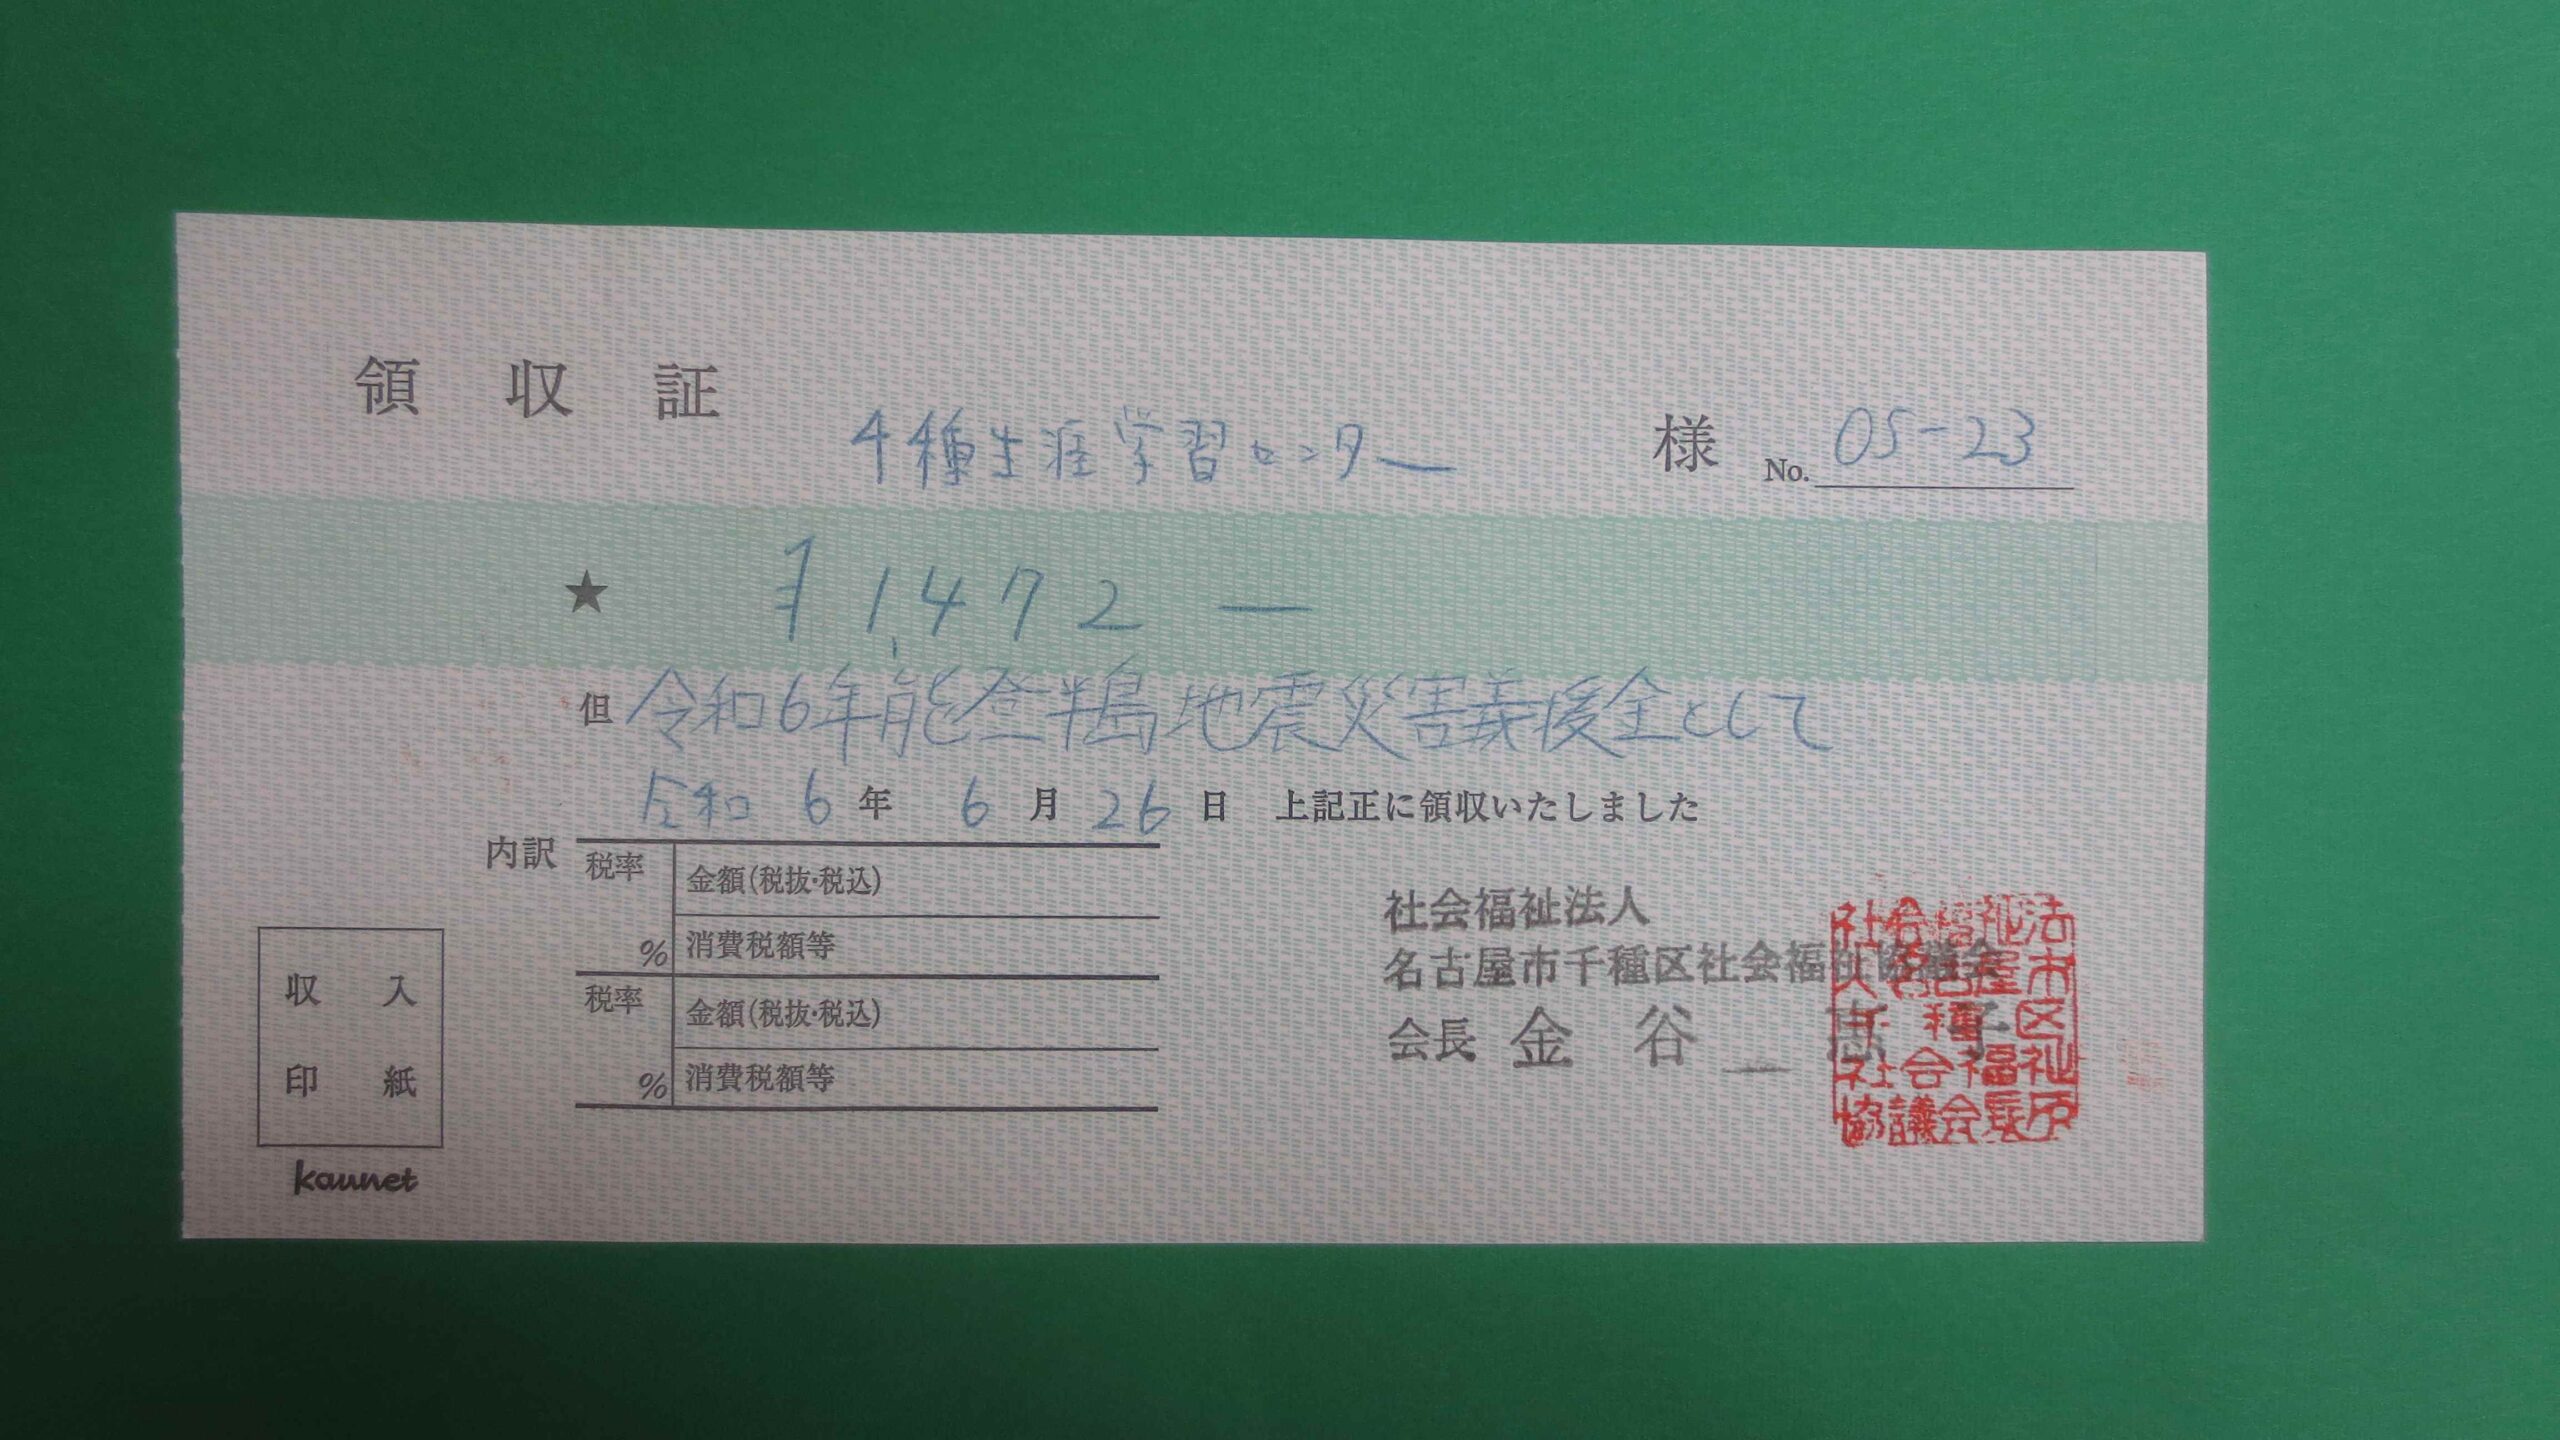 領収証
千種生涯学習センター 様 No. 05-23
★ ¥1,472 —
但 令和6年能登半島地震災害義援金として
令和 6 年 6 月 26 日 上記正に領収いたしました
内訳
税率 %
金額(税抜・税込)
消費税額等
税率 %
金額(税抜・税込)
消費税額等
収入
印紙
kaunet
社会福祉法人
名古屋市千種区社会福祉協議会
会長 金谷 恵子
社会福祉法
人名古屋市
千種区
社会福祉
協議会長印